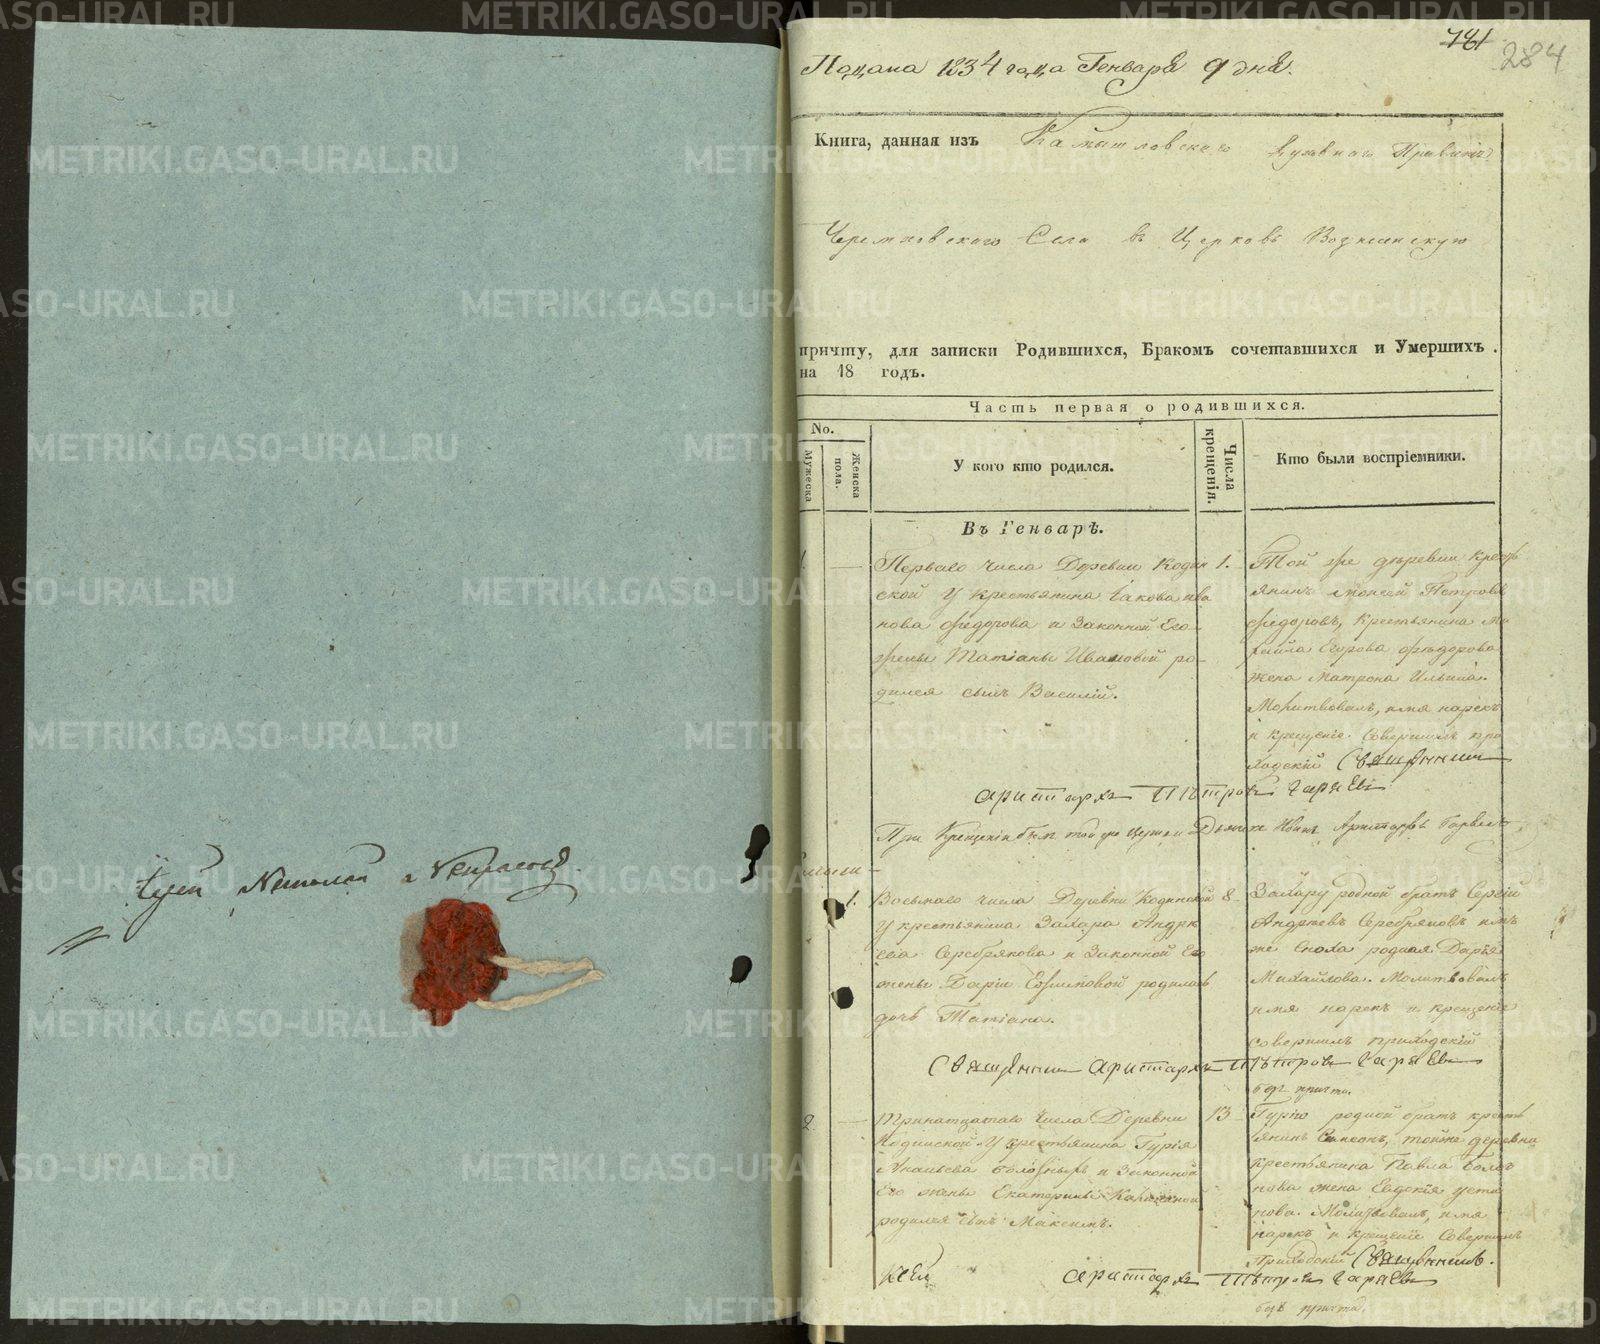 Подана 1834 года Генваря 9 дня.
781
284
Книга, данная изъ Камышловскаго Духовнаго Правленія
Черемховскаго Села въ Церковь Вознесенскую
причту, для записки Родившихся, Бракомъ сочетавшихся и Умершихъ.
на 18 годъ.
Часть первая о родившихся.
No.
Мужеска
Женска
пола.
У кого кто родился.
Числа
крещенія.
Кто были воспріемники.
Въ Генварѣ.
1.
Перваго числа Деревни Кодин
ской у крестьянина Іакова Ива
нова Федорова и Законной Его
жены Татіаны Ивановой ро-
дился сынъ Василій.
1.
Той же деревни Крест
янинъ Моисей Петровъ
Федоровъ, Крестьянина Ми
хайла Егорова Федорова
жена Матрона Ильина.
Молитвовалъ, имя нарекъ
и крещеніе Совершилъ при
ходскій Священник
Аристархъ Петровъ Гаряевъ
При Крещеніи былъ той же церкви Дьячек Иванъ
1.
Восьмаго числа Деревни Кодинской
у крестьянина Захара Андре
ева Серебрякова и Законной Его
жены Даріи Евфимовой родилась
дочь Татіана.
8
Захару родной братъ Сергій
Андреевъ Серебряковъ имъ
же сноха родная Дарья
Михайлова. Молитвовалъ
имя нарекъ и крещеніе
совершилъ приходскій
Священник Аристархъ Петровъ Гаряевъ
безъ причта.
2.
Тринатцатаго числа Деревни
Кодинской У крестьянина Гурія
и Законной
Его жены Екатерины
родился сынъ Максимъ.
13
Гурію родной братъ кресть
янинъ Самсонъ, тойже деревни
крестьянина Павла
жена Евдокія Усти
нова. Молитвовалъ, имя
нарекъ и крещеніе Совершилъ
Приходскій Священникъ.
Аристархъ Петровъ Гаряевъ
безъ причта.
Николай Некрасовъ
METRIKI.GASO-URAL.RU